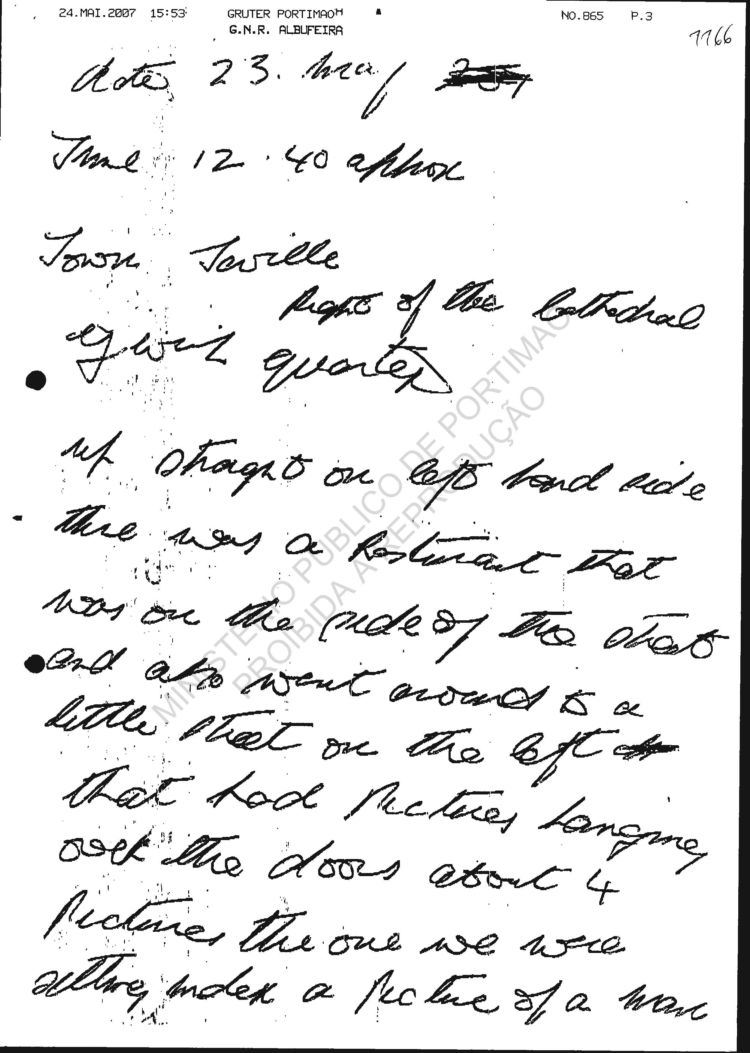 24.MAI.2007 15:53 GRUTER PORTIMAO NO.865 P.3
G.N.R. ALBUFEIRA
1166
date, 23. May
Time 12.40 approx
Town Saville
Right of the Cathedral
quarter
up straght on left hand side
there was a Resturant that
was on the side of the street
and also went around to a
little street on the left
that had Pictures hanging
over the doors about 4
Pictures the one we were
sitting under a Picture of a man
MINISTÉRIO PÚBLICO DE PORTIMAO
PROIBIDA A REPRODUÇÃO